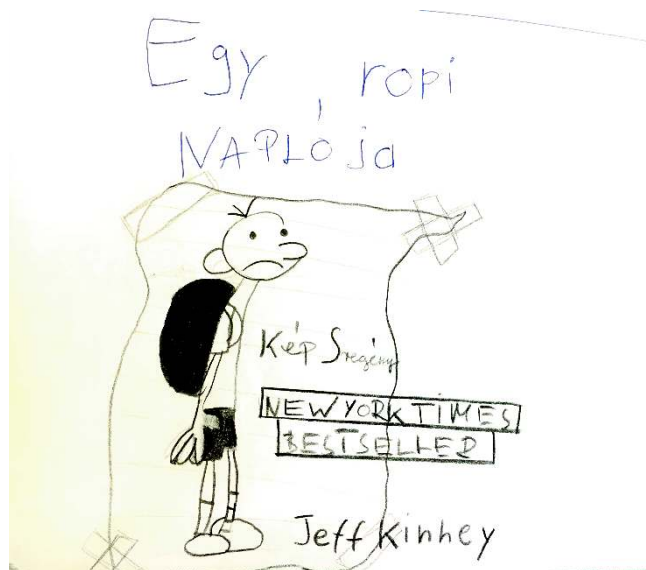 Egy ropi
NAPLÓja
Kép Sregény
NEW YORK TIMES
BESTSELLER
Jeff Kinhey